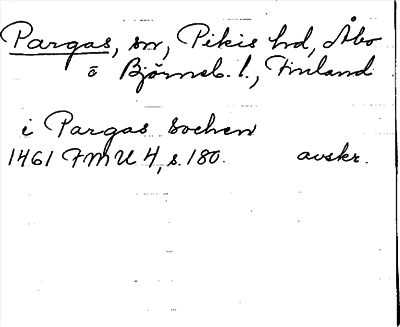 Pargas, sn, Pikis hd, Åbo
o Björneb. l., Finland
i Pargas sochen
1461 FMU 4, s. 180. avskr.